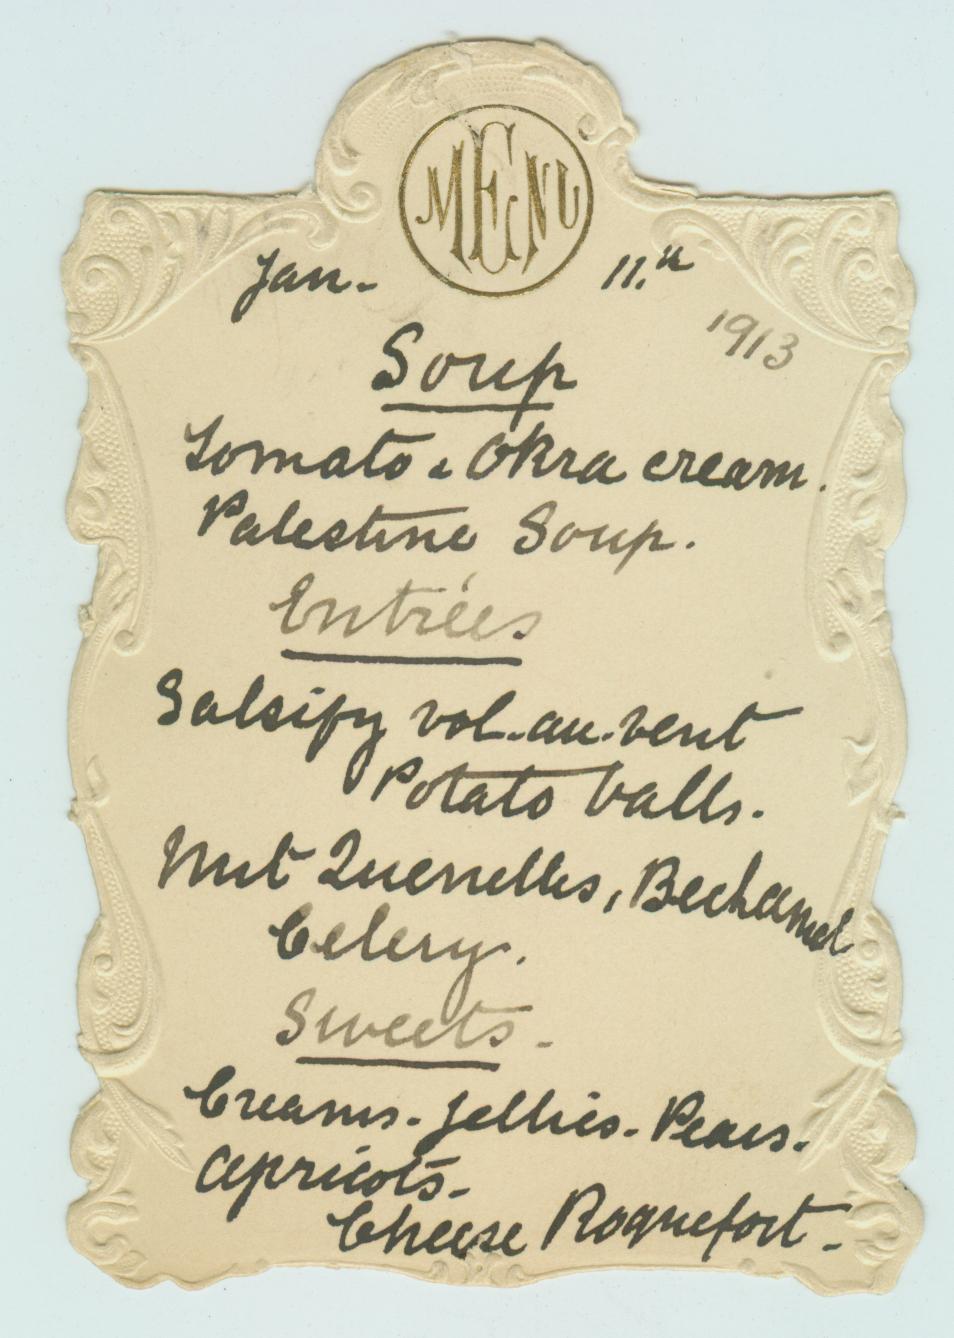 MENU
Jan. 11.th
1913
Soup
Tomato & Okra cream.
Palestine Soup.
Entrées
Salsify vol-au-vent
Potato balls.
Nut Quenelles, Bechamel
Celery.
Sweets.
Creams. Jellies. Pears.
Apricots.
Cheese Roquefort.